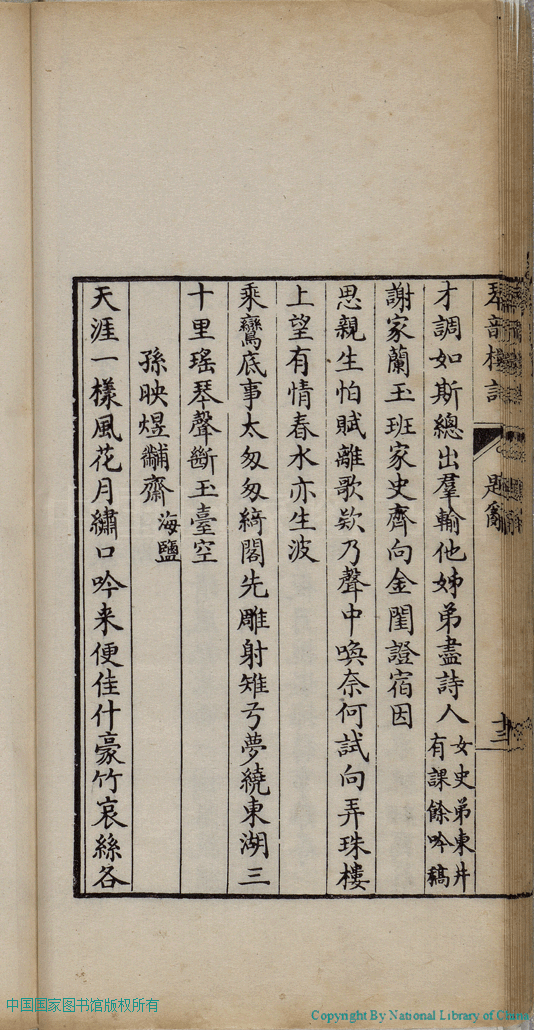 琴韵樓詩 題詞 十三
才調如斯總出羣輸他姊弟盡詩人女史弟東井有課餘吟稿
謝家蘭玉班家史齊向金閨證宿因
思親生怕賦離歌欵乃聲中喚奈何試向弄珠樓
上望有情春水亦生波
乘鸞底事太匆匆綺閣先雕射雉弓夢繞東湖三
十里瑤琴聲斷玉臺空
孫映煜黼齋海鹽
天涯一樣風花月繡口吟来便佳什豪竹哀絲各
中国国家图书馆版权所有
Copyright By National Library of China